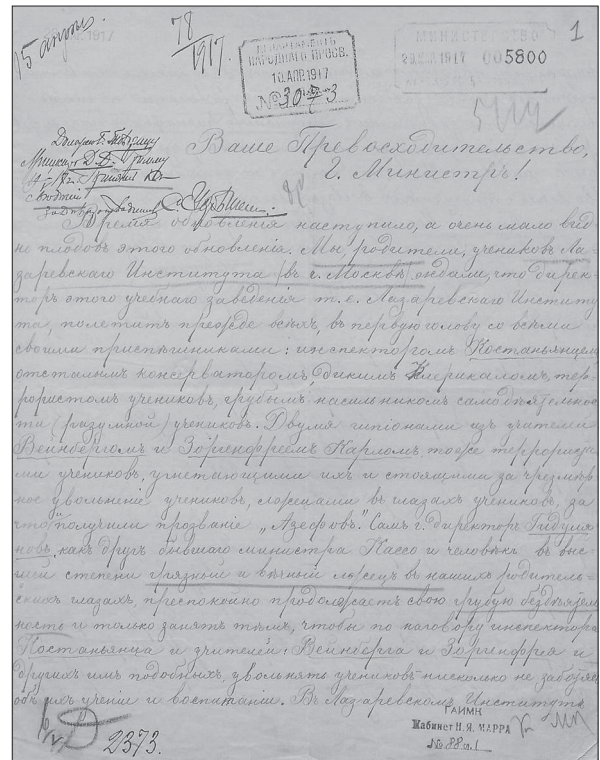 15 апрѣл.
78
1917.
ДЕПАРТАМЕНТЪ
НАРОДНАГО ПРОСВ.
10 АПР. 1917
№ 3073
МИНИСТЕРСТВО
1917 005800
1
Ваше Превосходительство,
Г. Министръ!
Время обновленія наступило, а очень мало вид
но плодовъ этого обновленія. Мы, родители, учениковъ Ла-
заревскаго Института въ г. Москвѣ, ожидали, что дирек-
торъ этого учебнаго заведенія т. е. Лазаревскаго Институ
та, полетитъ прежде всѣхъ, въ первую голову со всѣми
своими приспѣшниками: инспекторомъ Костаньянцемъ
отсталымъ консерваторомъ, дикимъ клерикаломъ, тер-
рористомъ учениковъ, грубымъ насильникомъ самодѣятельнос
ти (разумной) учениковъ. Двумя шпіонами изъ учителей
Вейнбергомъ и Зоргенфреемъ Карломъ, тоже террориста
ми учениковъ, угнетающими ихъ и стоящими за чрезмѣр
ное увольненіе учениковъ, лжецами въ глазахъ учениковъ, за
что и получили прозваніе „Азефовъ". Самъ г. директоръ Гидуля
новъ, какъ другъ бывшаго министра Кассо и человѣкъ въ выс
шей степени грязный и вѣчный лжецъ въ нашихъ родитель-
скихъ глазахъ, преспокойно продолжаетъ свою грубую бездѣятель
ность и только занятъ тѣмъ, чтобы по наговору инспектора
Костаньянца и учителей: Вейнберга и Зоргенфрея и
другихъ имъ подобныхъ, увольнять учениковъ нисколько не заботясь
объ ихъ ученіи и воспитаніи. Въ Лазаревскомъ Институтѣ
2373.
ГАИМК
Кабинет Н. Я. МАРРА
№ 88 л. 1